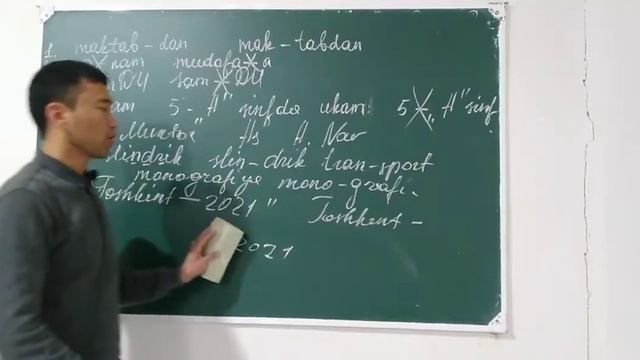 1. maktab-dan mak-tabdan
nam mudofa-a
DU Sam DU
am 5-"A" sinfda ukam: 5 "A" sinf.
Munis" As A. Nav
slindrik slin-drik tran-sport
monografiya mono-grafi.
Toshkent-2021" Toshkent-
2021